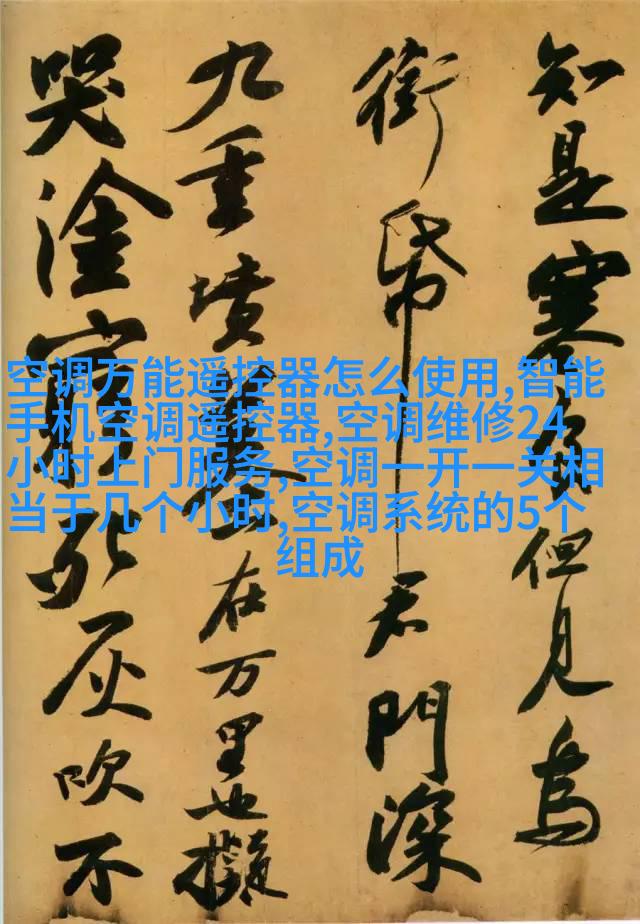 知是寒食但見烏
銜帋君門深
九重墳墓在万里也擬
哭塗窮死灰吹不
空调万能遥控器怎么使用,智能
手机空调遥控器,空调维修24
小时上门服务,空调一开一关相
当于几个小时,空调系统的5个
组成